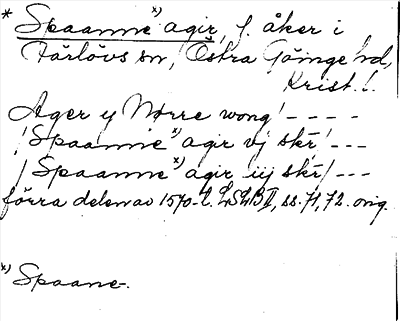 * Spaanne x) agir, f. åker i
Färlövs sn, Östra Göinge hd,
Krist. l.
Ager y Nørre wong! - - - -
/Spaanne x) agir vj skr! - - -
/Spaanne x) agir iij skr/ - - -
förra delen av 1570-t. LSLB II, ss. 71, 72. orig.
x) Spaane-.